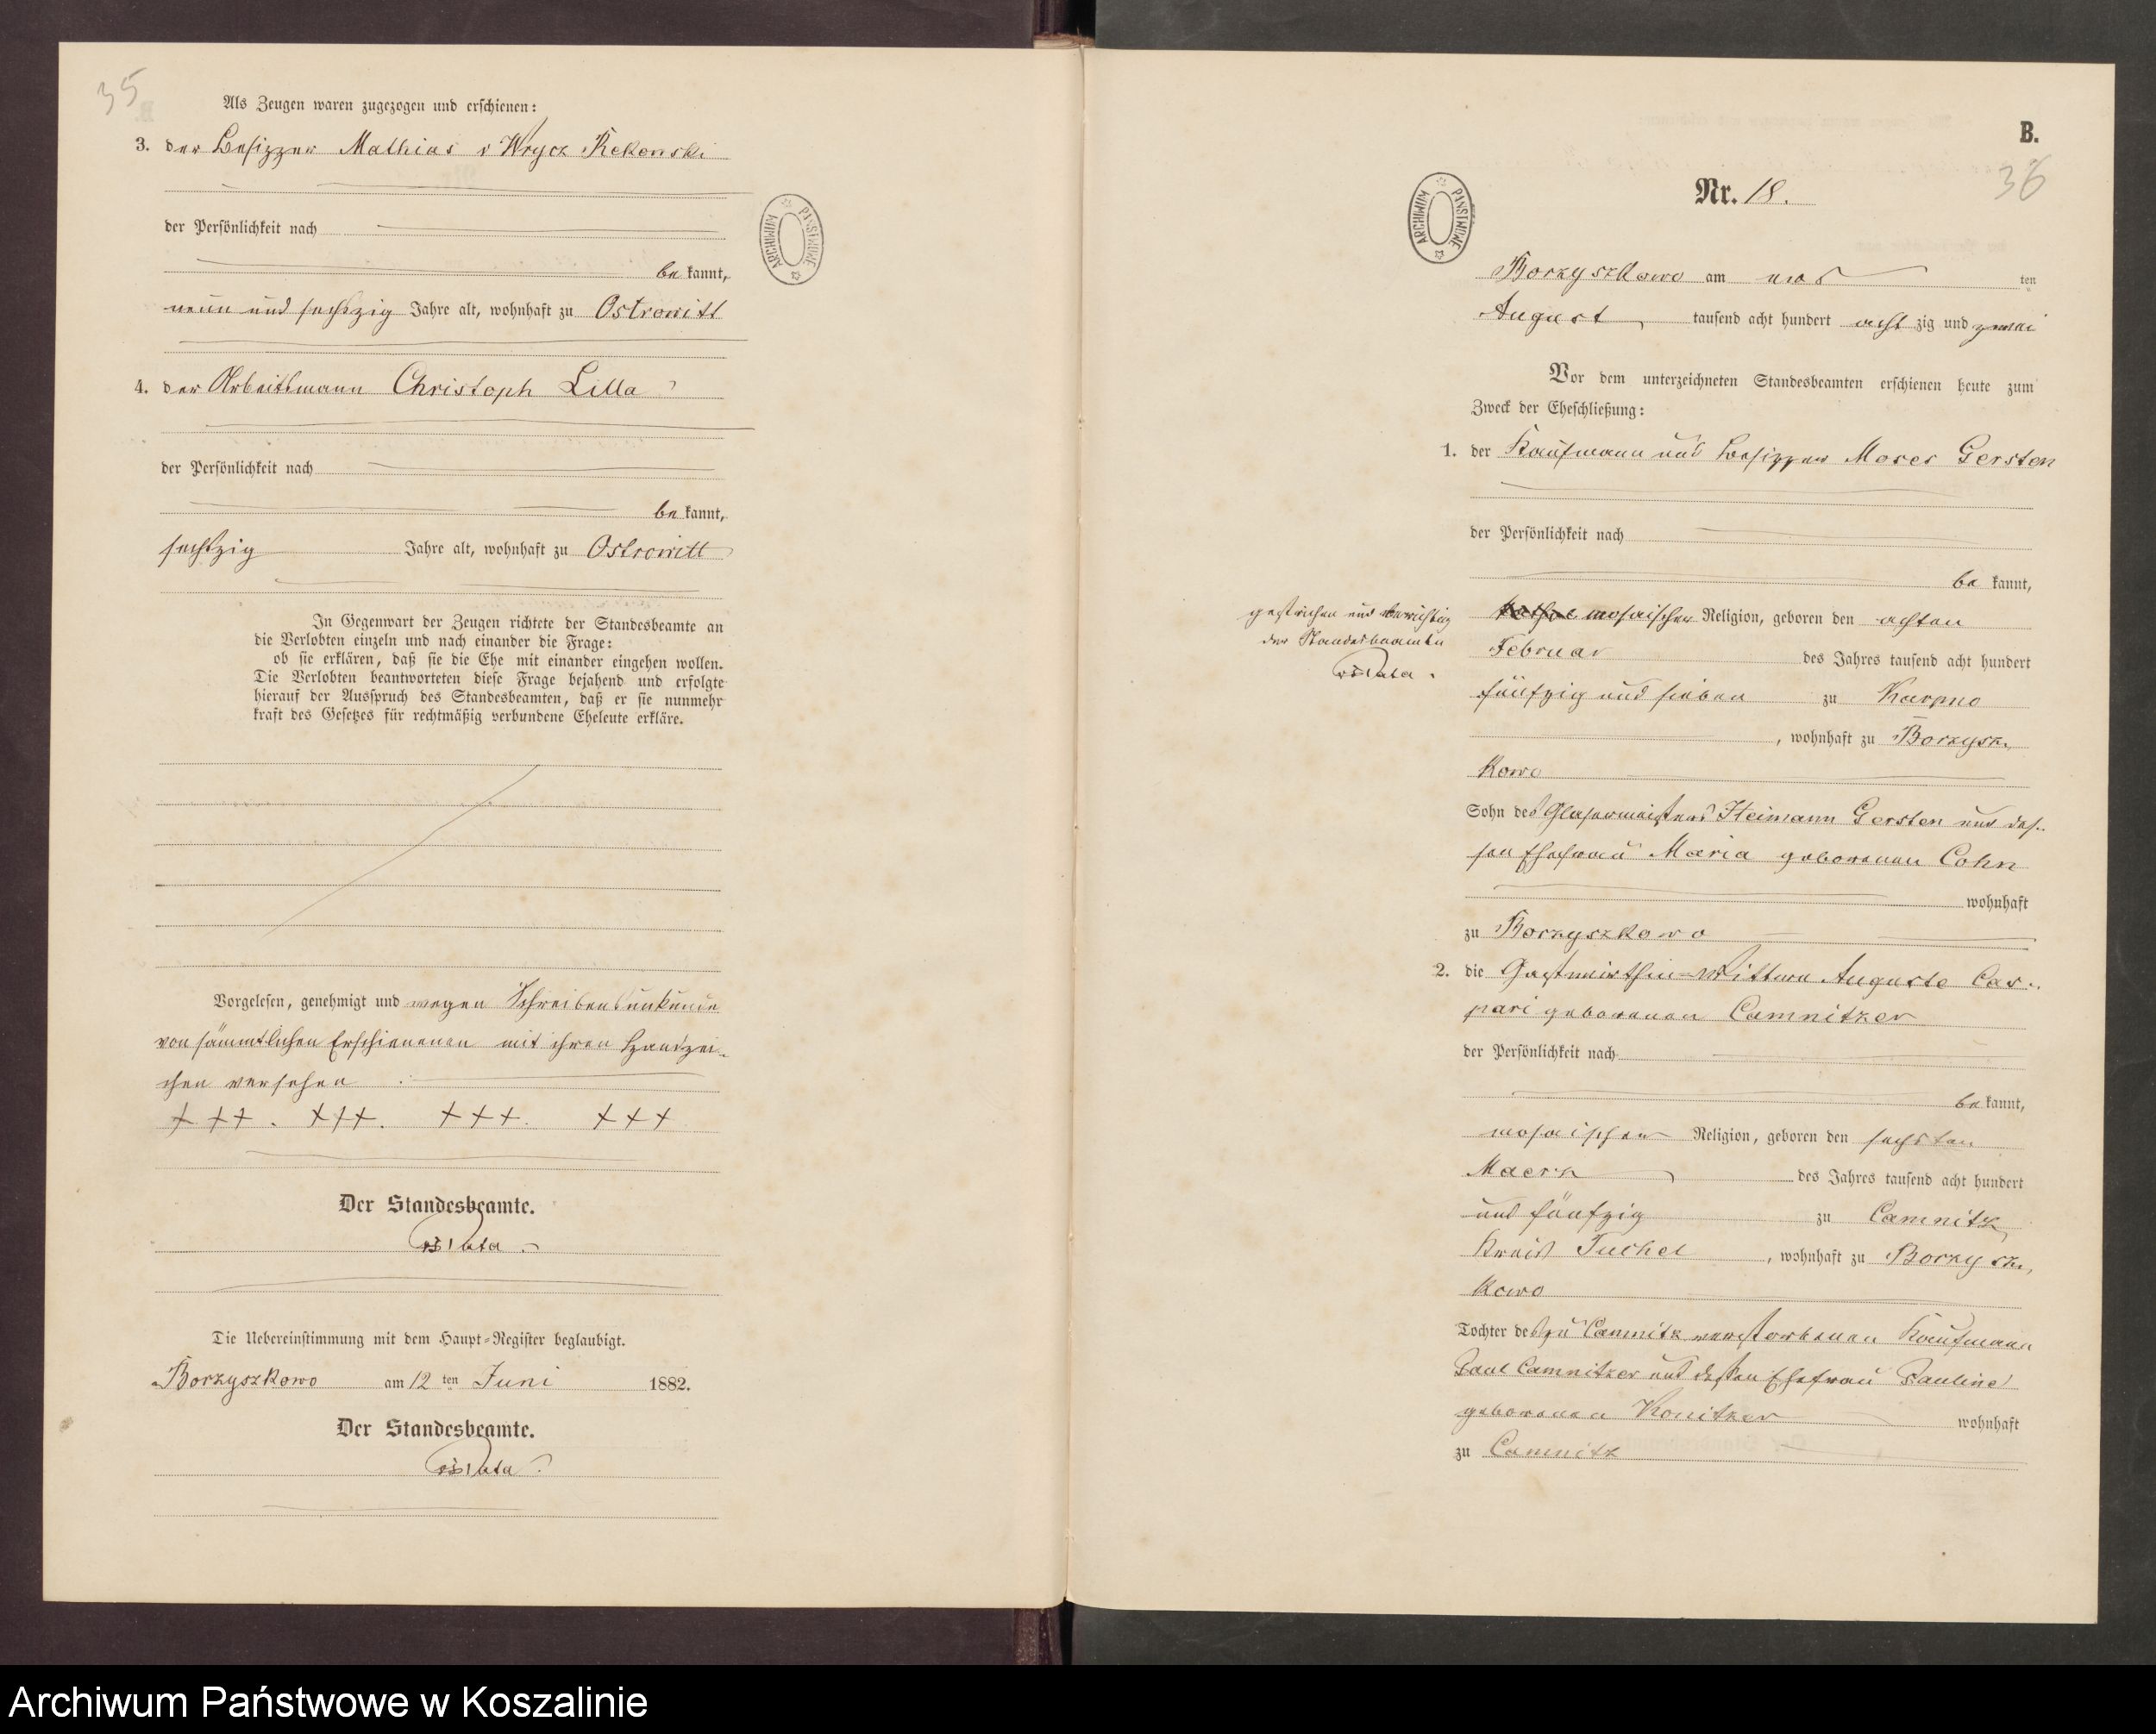 35
Als Zeugen waren zugezogen und erschienen:
3. der Besizzer Mathias v Wrycz Rekowski
der Persönlichkeit nach
be kannt,
neun und sechszig Jahre alt, wohnhaft zu Ostrowitt
4. der Arbeitsmann Christoph Lilla
der Persönlichkeit nach
be kannt,
sechszig Jahre alt, wohnhaft zu Ostrowitt
In Gegenwart der Zeugen richtete der Standesbeamte an
die Verlobten einzeln und nach einander die Frage:
ob sie erklären, daß sie die Ehe mit einander eingehen wollen.
Die Verlobten beantworteten diese Frage bejahend und erfolgte
hierauf der Ausspruch des Standesbeamten, daß er sie nunmehr
kraft des Gesetzes für rechtmäßig verbundene Eheleute erkläre.
Vorgelesen, genehmigt und wegen Schreibensunkunde
von sämmtlichen Erschienenen mit ihren Handzei-
chen versehen :
+++ . +++. +++. +++
Der Standesbeamte.
Die Uebereinstimmung mit dem Haupt-Register beglaubigt.
Borzyszkowo am 12 ten Juni 1882.
Der Standesbeamte.
B.
36
Nr. 18.
ARCHIWUM PAŃSTWOWE
ARCHIWUM PAŃSTWOWE
Borzyszkowo am ten
August tausend acht hundert acht zig und zwei
Vor dem unterzeichneten Standesbeamten erschienen heute zum
Zweck der Eheschließung:
1. der Kaufmann und Besizzer Moses Gersten
der Persönlichkeit nach
be kannt,
gestrichen und berichtig
der Standesbeamte
mosaischer Religion, geboren den achten
Februar des Jahres tausend acht hundert
fünfzig und sieben zu Karpno
, wohnhaft zu Borzysz-
kowo
Sohn des Glasermeisters Heimann Gersten und des-
sen Ehefrau Maria geborenen Cohn
wohnhaft
zu Borzyszkowo
2. die Gastwirthin-Wittwe Auguste Cas-
pari geborenen Camnitzer
der Persönlichkeit nach
be kannt,
mosaischer Religion, geboren den sechsten
Maerz des Jahres tausend acht hundert
und fünfzig zu Camnitz
Kreis Tuchel, wohnhaft zu Borzysz-
kowo
Tochter des zu Camnitz verstorbenen Kaufmann
Paul Camnitzer und dessen Ehefrau Pauline
geborenen Konitzer wohnhaft
zu Camnitz
Archiwum Państwowe w Koszalinie